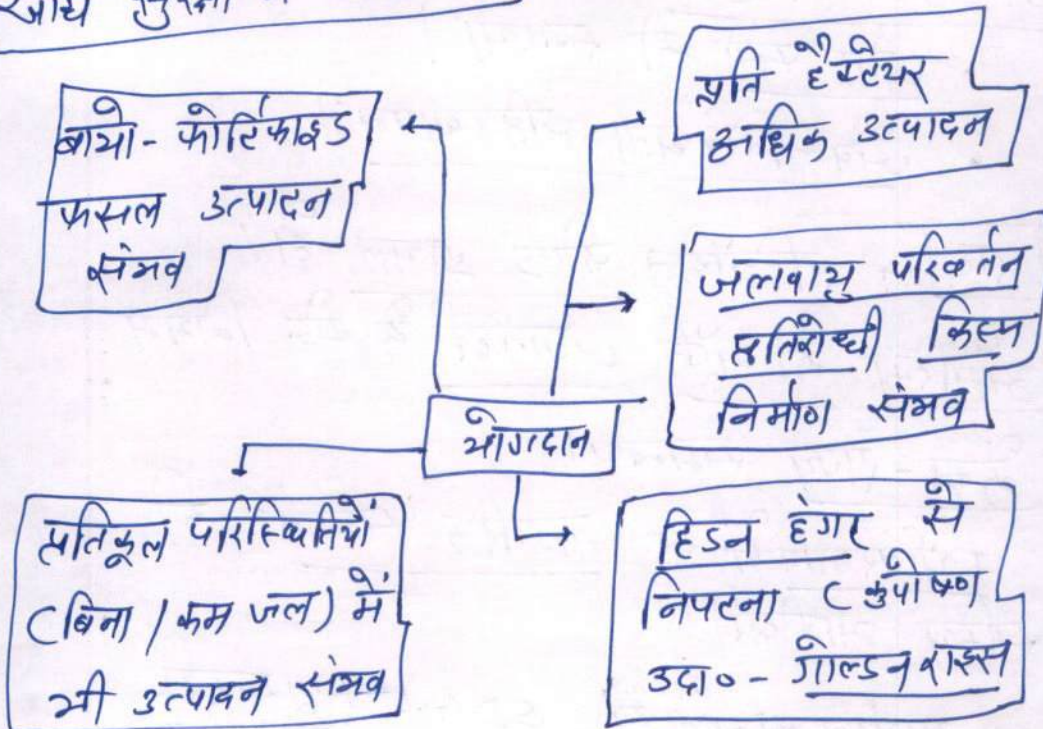 खाद्य सुरक्षा
बायो- फोर्टिफाइड
फसल उत्पादन
संभव
प्रति हैक्टेयर
अधिक उत्पादन
जलवायु परिवर्तन
प्रतिरोधी किस्म
निर्माण संभव
योगदान
प्रतिकूल परिस्थितियों
(बिना / कम जल) में
भी उत्पादन संभव
हिडन हंगर से
निपटना (कुपोषण
उदा०- गोल्डन राइस